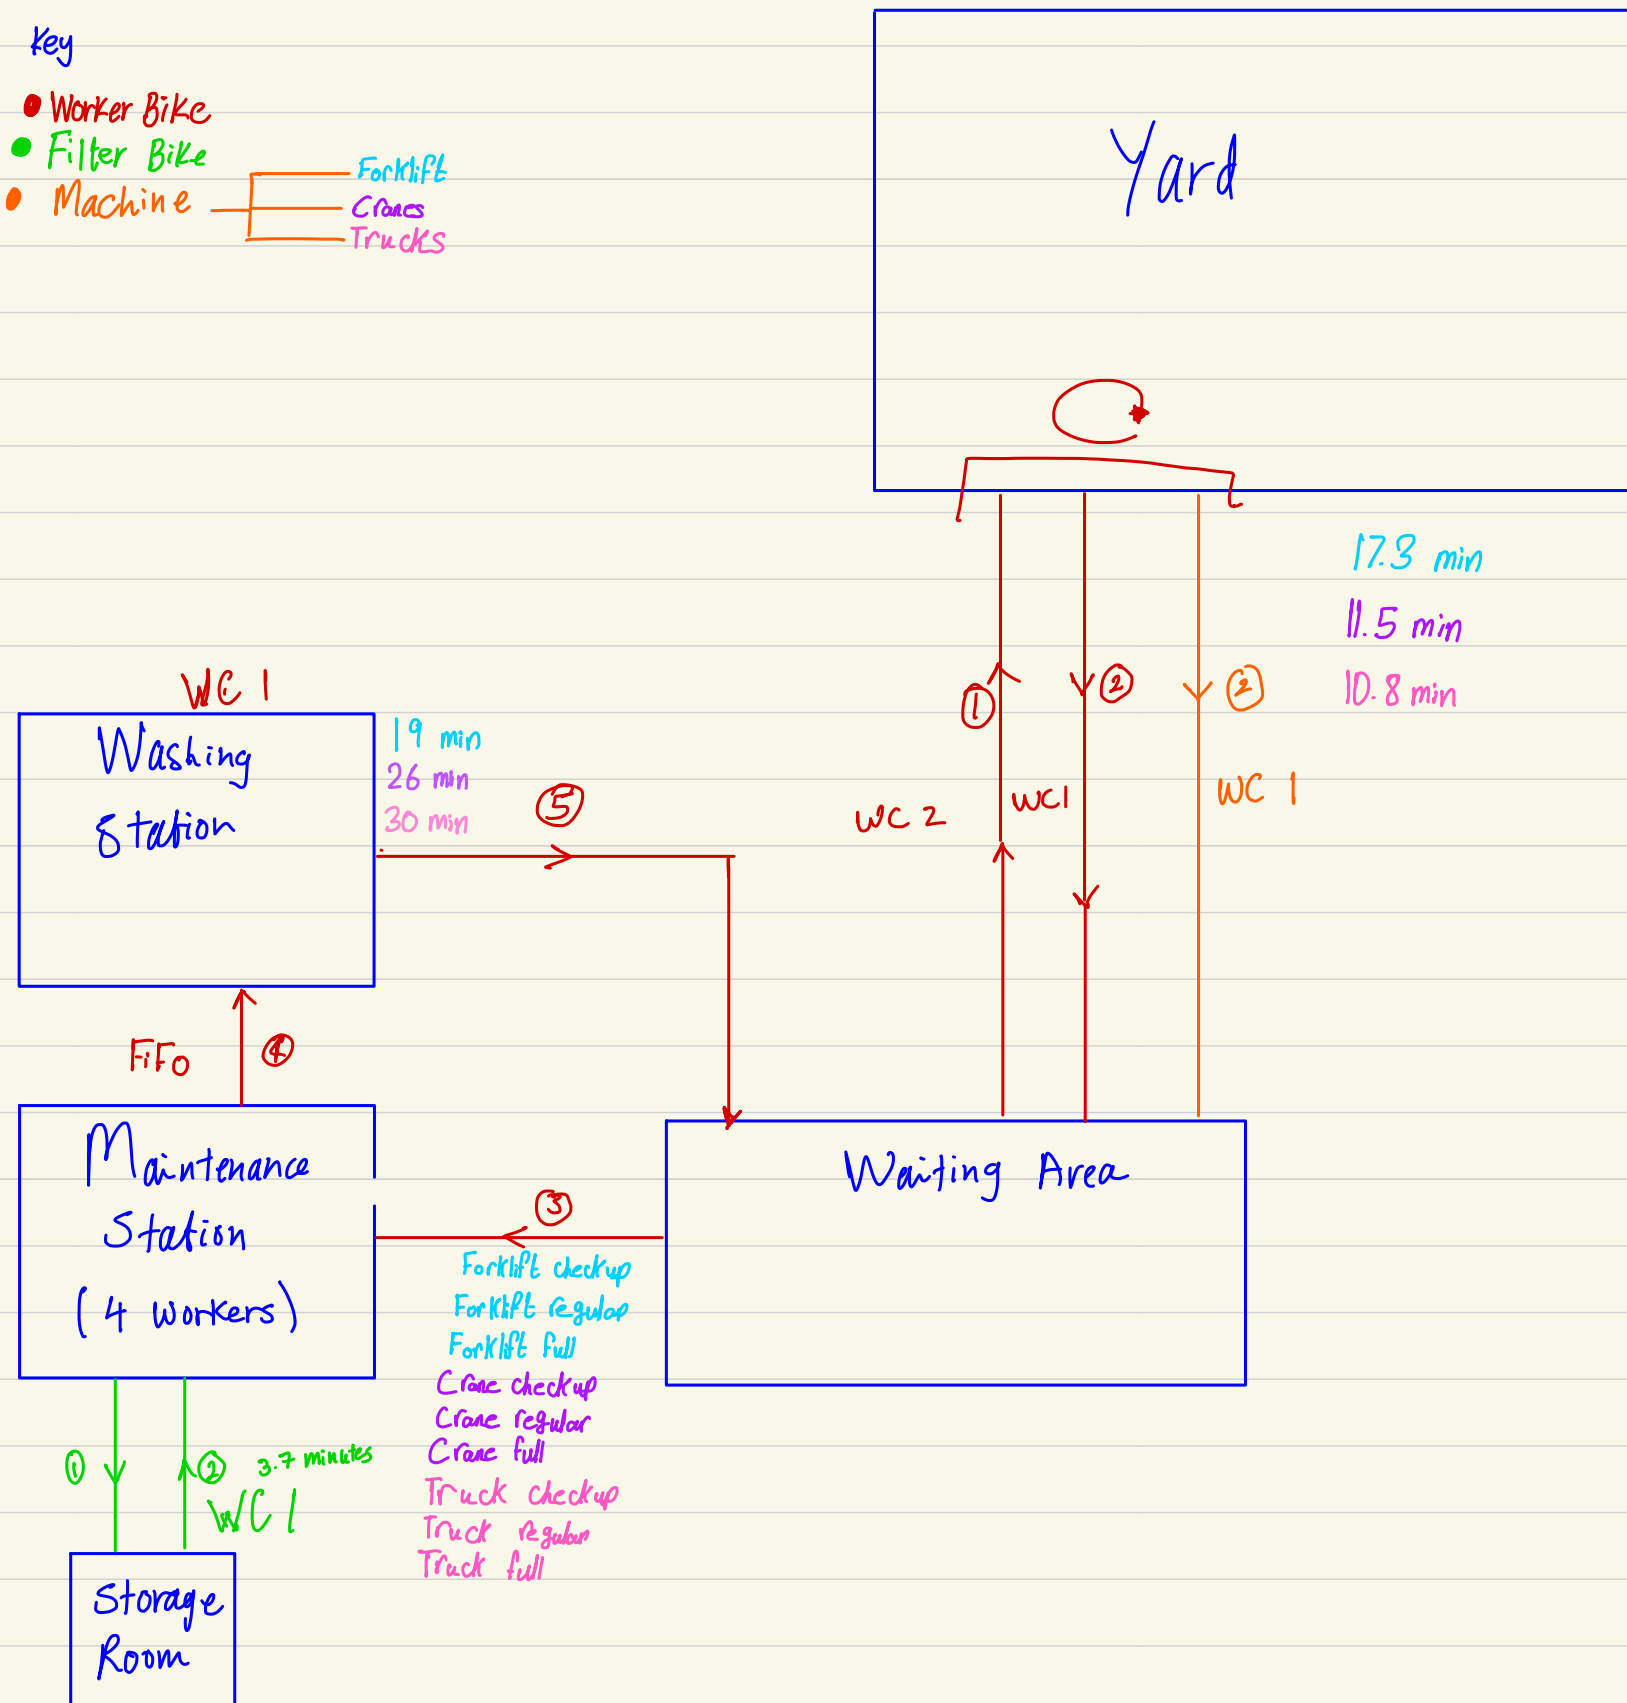 Key
Worker Bike
Filter Bike
Machine
Forklift
Cranes
Trucks
Yard
17.3 min
11.5 min
10.8 min
①
②
②
WC 2
WC1
WC 1
WC 1
Washing
Station
19 min
26 min
30 min
⑤
FiFo
④
Maintenance
Station
(4 workers)
③
Waiting Area
Forklift checkup
Forklift regular
Forklift full
Crane checkup
Crane regular
Crane full
Truck checkup
Truck regular
Truck full
①
② 3.7 minutes
WC 1
Storage
Room